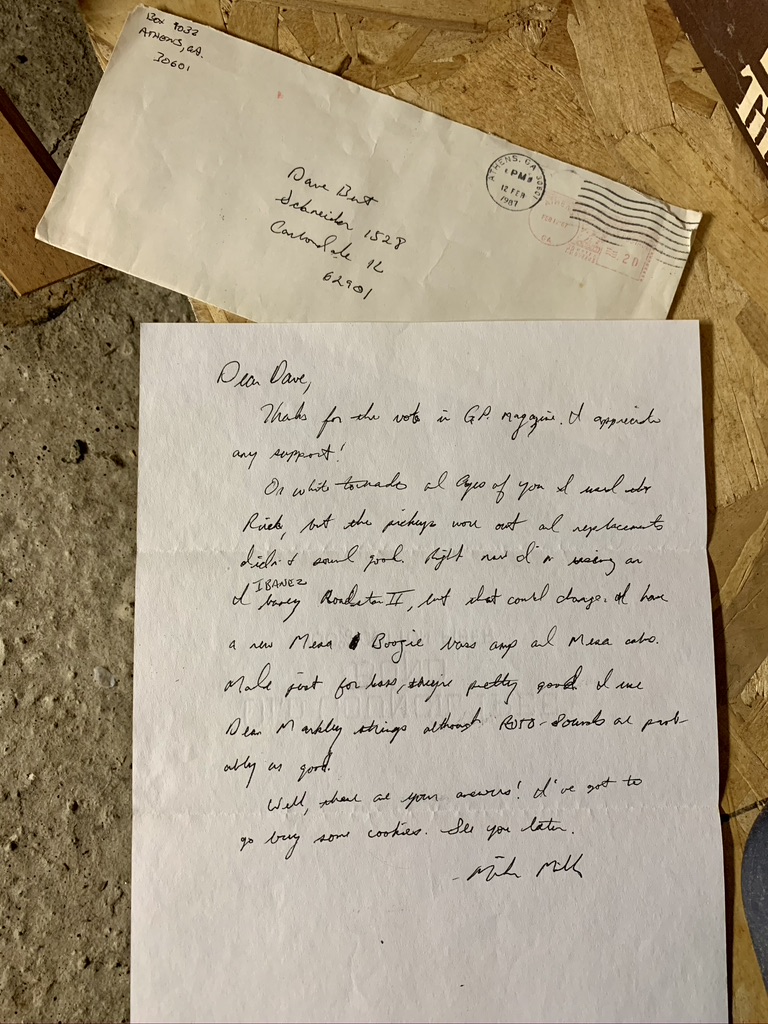 Box 9032
ATHENS, GA.
30601
ATHENS, GA 30601
PM
12 FEB
1987
20
Dave Bert
Schneider 1528
Carbondale IL
62901
Dear Dave,
Thanks for the vote in G.P. Magazine. I appreciate
any support!
On white tornados and Ages of you I used the
Rick, but the pickups wore out and replacements
didn't sound good. Right now I'm using an
IBANEZ
Ibanez Roadstar II, but that could change. I have
a new Mesa Boogie bass amp and Mesa cabs.
Made just for bass, they're pretty good. I use
Dean Markley strings although ROTO-Sounds are prob-
ably as good.
Well, there are your answers! I've got to
go buy some cookies. See you later.
- Mike Mills